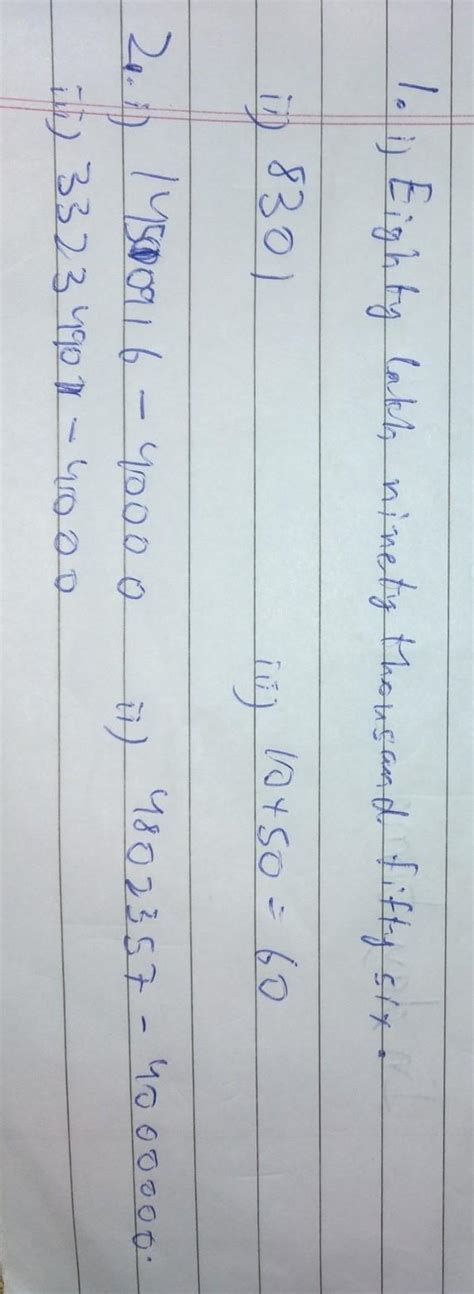 1. i) Eighty lakh ninety thousand fifty six.
ii) 8301 iii) 10+50=60
2. i) 1450916 - 40000 ii) 4802357 - 4000000.
iii) 3323490 - 4000